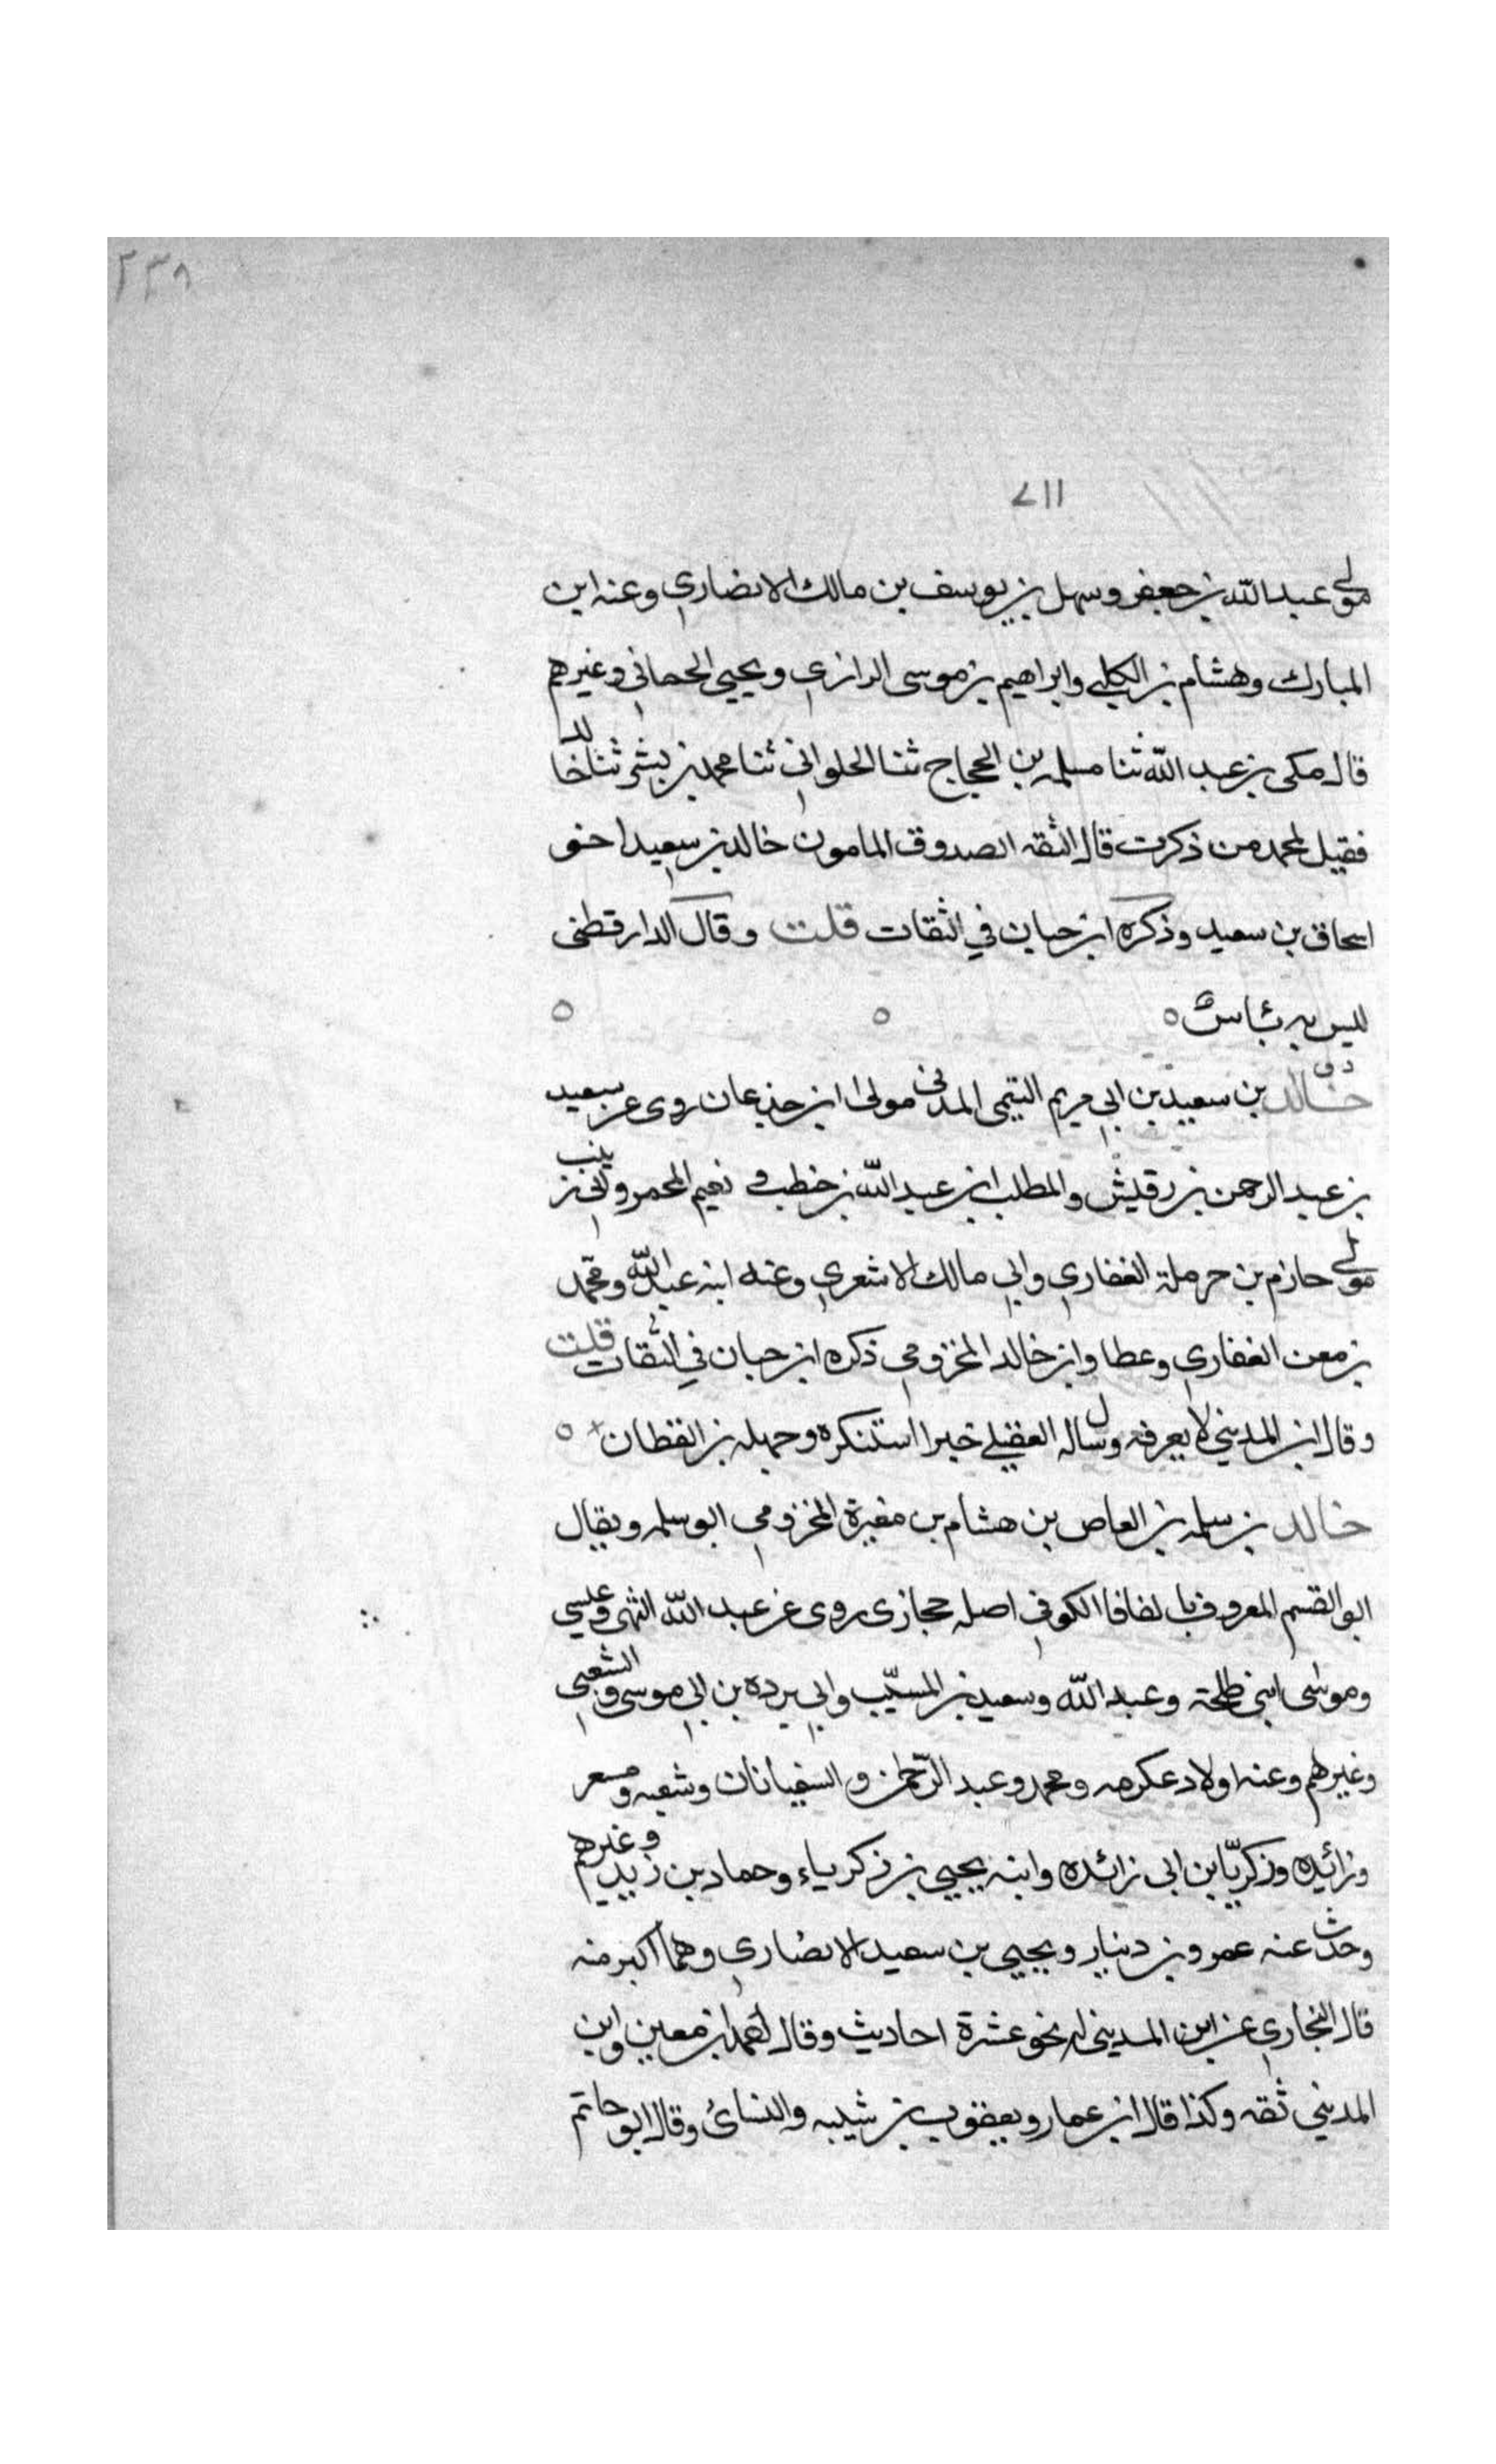 ٢٣٨
٧١١
مولى عبدالله بن جعفر وسهل بن يوسف بن مالك الانصاري وعنه ابن
المبارك وهشام بن الكلبي وابراهيم بن موسى الرازي ويحيى الحماني وغيرهم
قال مكى بن عبد الله ثنا مسلمه بن الحجاج ثنا الحلواني ثنا محمد بن بشر ثنا خالد
فقيل لمحمد من ذكرت قال الثقه الصدوق المامون خالد بن سعيد اخو
اسحاق بن سعيد وذكره ابن حبان في الثقات قلت وقال الدارقطنى
ليس به بئاس
د ق
خالد بن سعيد بن ابي مريم التيمى المدنى مولى ابن جذعان روى عن سعيد
بن عبد الرحمن بن رقيش والمطلب ابن عبد الله بن خطب و نعيم المحمر و
مولى حازم بن حرملة الغفاري وابي مالك الاشعري وعنه ابنه عبدالله ومحمد
بن معن الغفاري وعطا وابن خالد المخزومي ذكره ابن حبان في الثقات قلت
وقال ابن المديني لا يعرفه وسال له العقيلي خبرا استنكره وجهله بن القطان
خالد بن سلمه بن العاص بن هشام بن مغيرة المخزومي ابو سلمه ويقال
ابو القسم المعروف با لفافا الكوفي اصله حجازى روى عن عبد الله وعيسى
وموسى ابني طلحة وعبد الله وسعيد بن المسيّب وابي برده بن ابي موسى والشعبي
وغيرهم وعنه اولاد عكرمه ومحمد وعبد الرّحمن والسفيانان وشعبه ومسعر
وزائيده وزكريّا بن ابى زائده وابنه يحيى بن زكرياء وحماد بن زيد وغيرهم
وحدث عنه عمرو بن دينار ويحيى بن سعيد الانصاري وهما اكبر منه
قال البخاري عن ابن المديني له نحو عشرة احاديث وقال احمد ابن معين وابن
المديني ثقه وكذا قال ابن عمار ويعقوب بن شيبه والنسائ وقال ابو حاتم